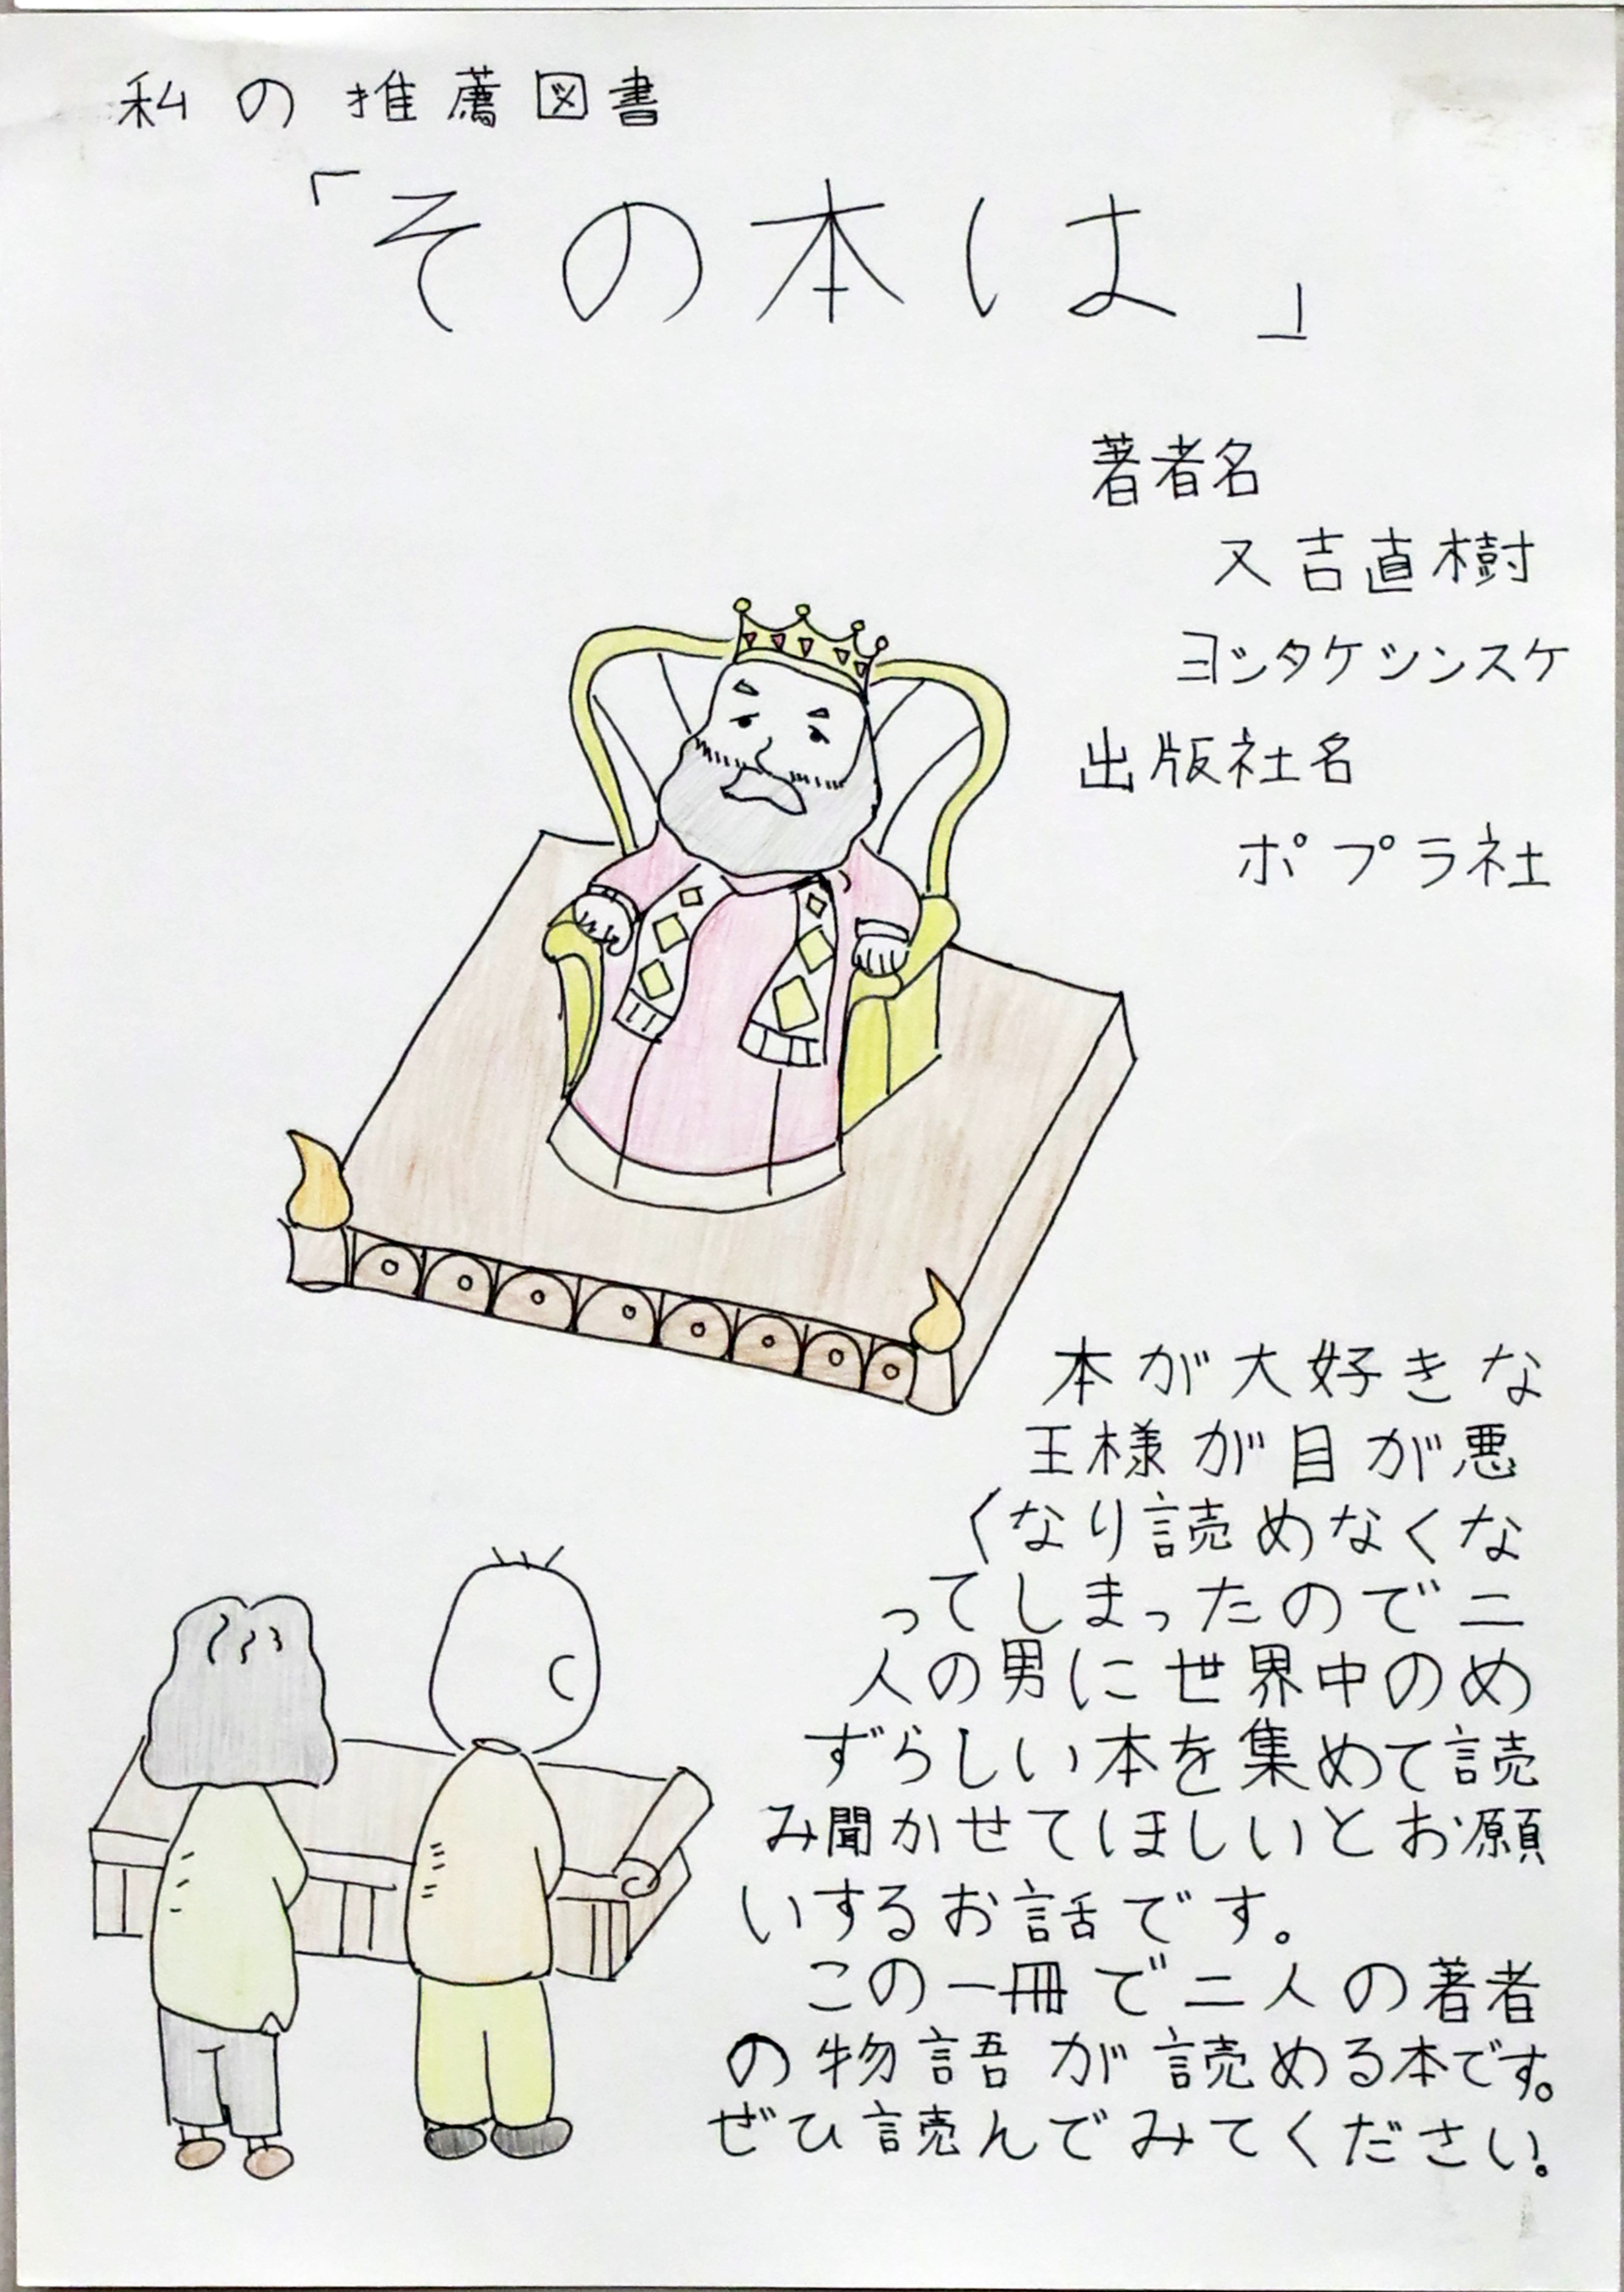 私の推薦図書
「その本は」
著者名
又吉直樹
ヨシタケシンスケ
出版社名
ポプラ社
本が大好きな
王様が目が悪
くなり読めなくな
ってしまったので二
人の男に世界中のめ
ずらしい本を集めて読
み聞かせてほしいとお願
いするお話です。
この一冊で二人の著者
の物語が読める本です。
ぜひ読んでみてください。